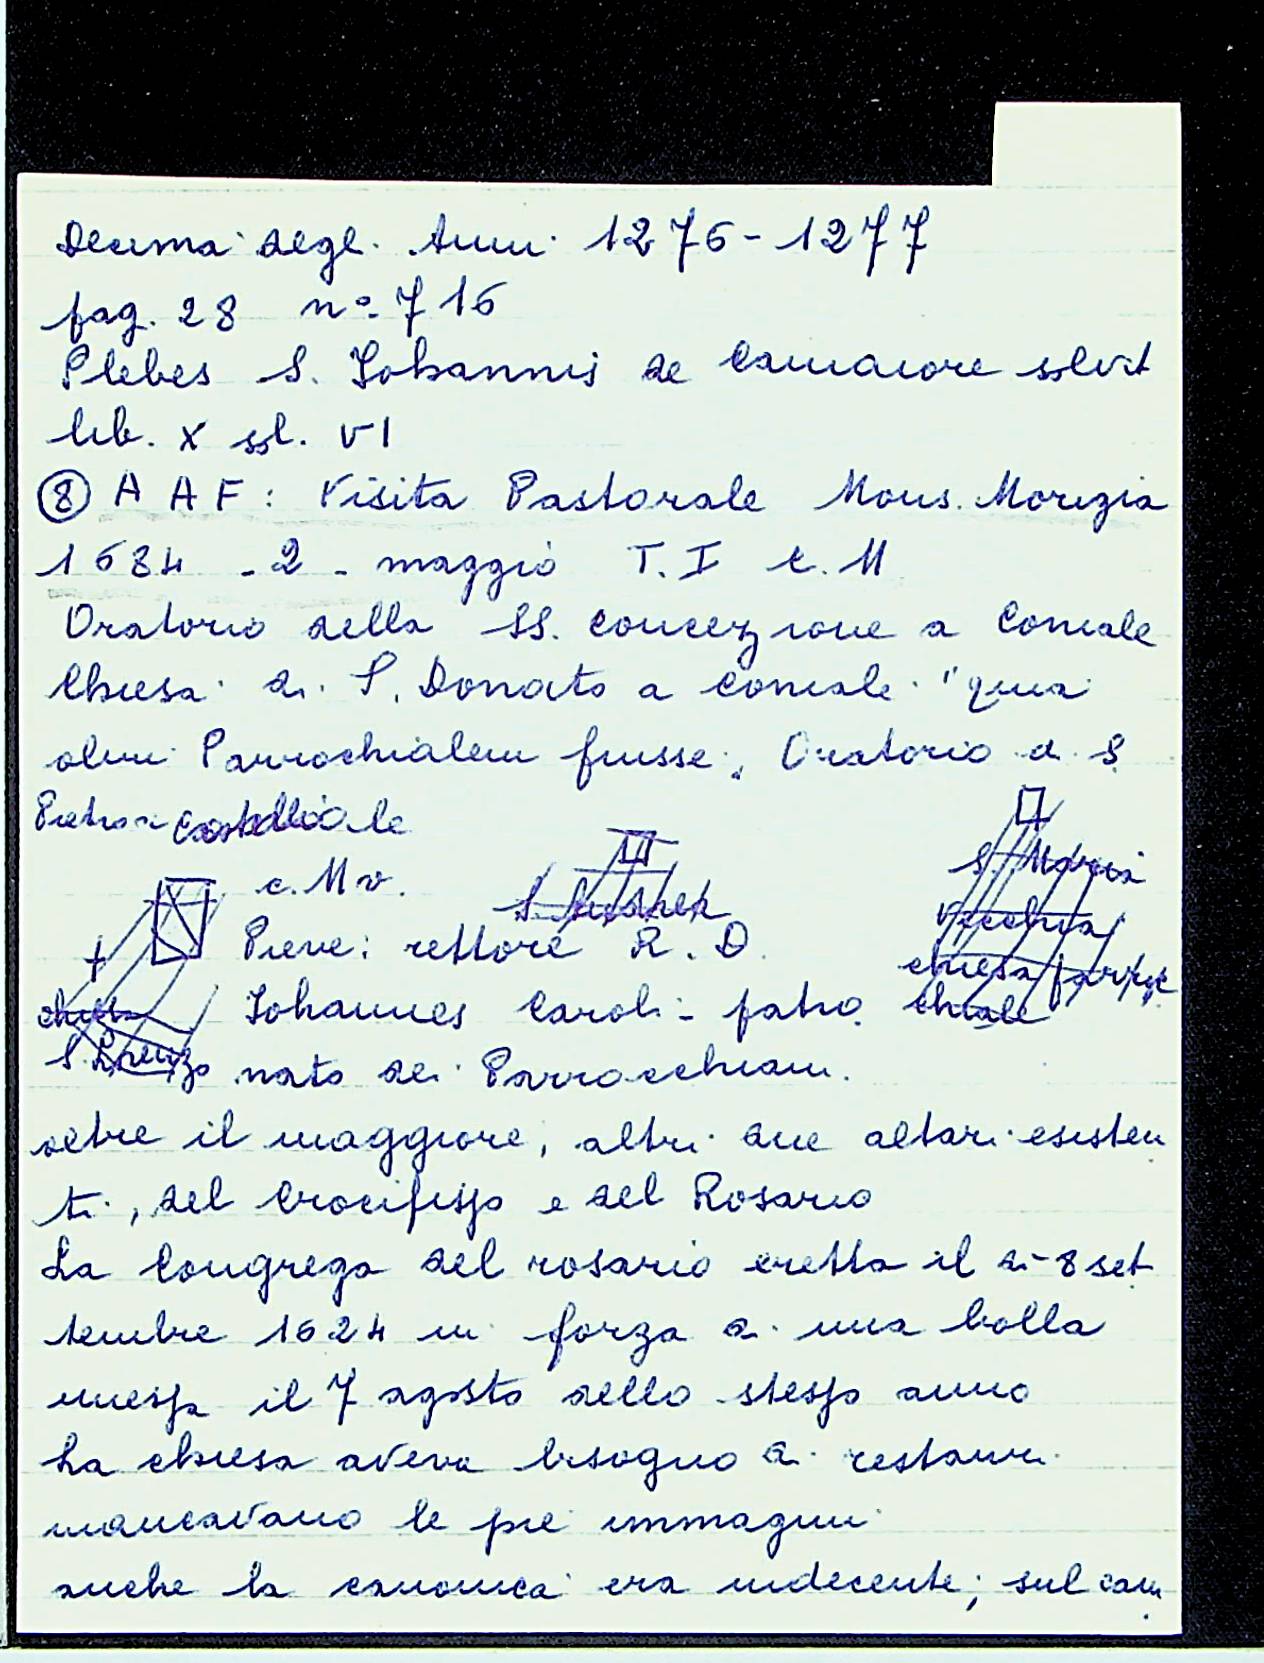 Decima degli Anni 1276-1277
pag. 28 n° 716
Plebes S. Johannis de Camaiore solvit
lib. X sol. VI
⑧ A A F: Visita Pastorale Mons. Morigia
1684 - 2 - maggio T. I c. 11
Oratorio della SS. Concezione a Coniale
Chiesa di S. Donato a Coniale "quia
olim Parrochialem fuisse; Oratorio di S
Pietro a
c. 11 v.
S. Maria
Vecchia
Pieve: rettore R. D.
chiesa parroc
chiesa
Johannes Caroli - patro
chiale
S. Lorenzo
nato dei Parrocchiani.
oltre il maggiore, altri due altari esisten
ti, del Crocifisso e del Rosario
La Congrega del rosario eretta il dì 8 set
tembre 1624 in forza di una bolla
messa il 7 agosto dello stesso anno
La chiesa aveva bisogno di restauri
mancavano le pie immagini
anche la canonica era indecente; sul cam